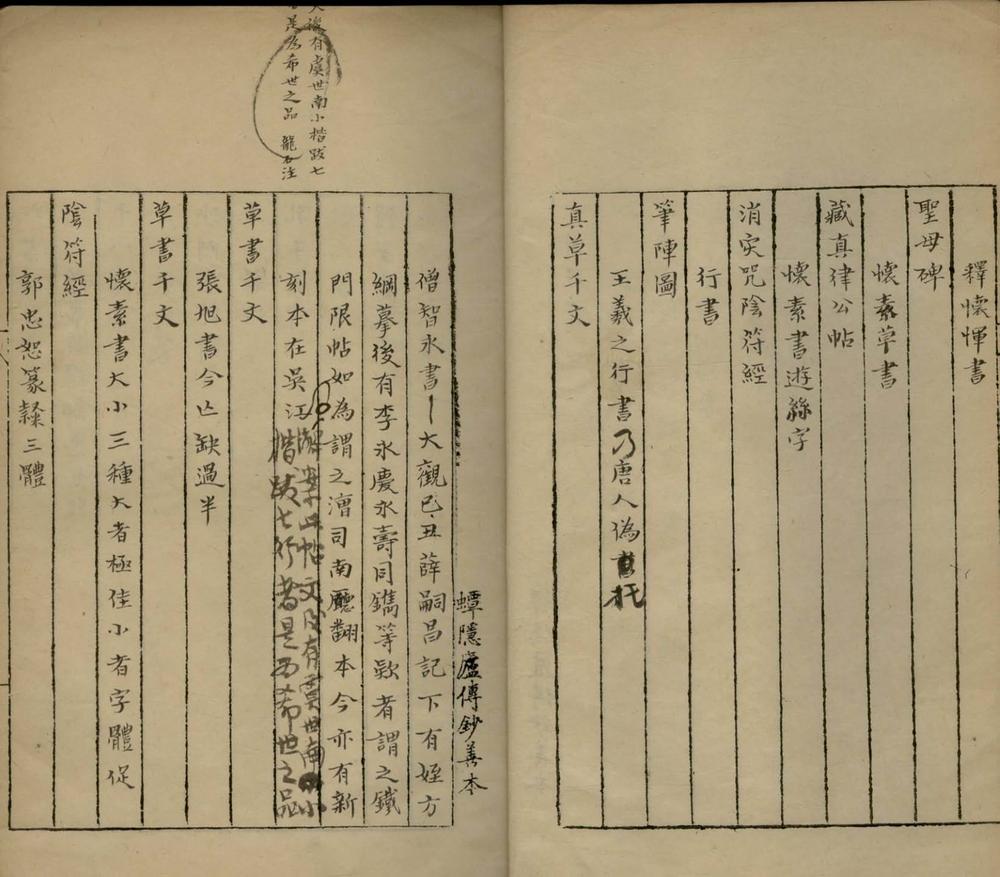 釋懷惲書
聖母碑
懷素草書
藏真律公帖
懷素書遊絲字
消灾咒陰符經
行書
筆陣圖
王羲之行書乃唐人偽書托
真草千文
蟫隱廬傳鈔善本
僧智永書大觀已丑薛嗣昌記下有姪方
綱摹後有李永慶永壽同鐫等欵者謂之鐵
門限帖如為謂之漕司南廳翻本今亦有新
刻本在吳江
此帖文後有虞世南小
楷跋七行者是為希世之品
草書千文
張旭書今亡缺過半
草書千文
懷素書大小三種大者極佳小者字體促
陰符經
郭忠恕篆隸三體
後有虞世南小楷跋七
是為希世之品 龍石注